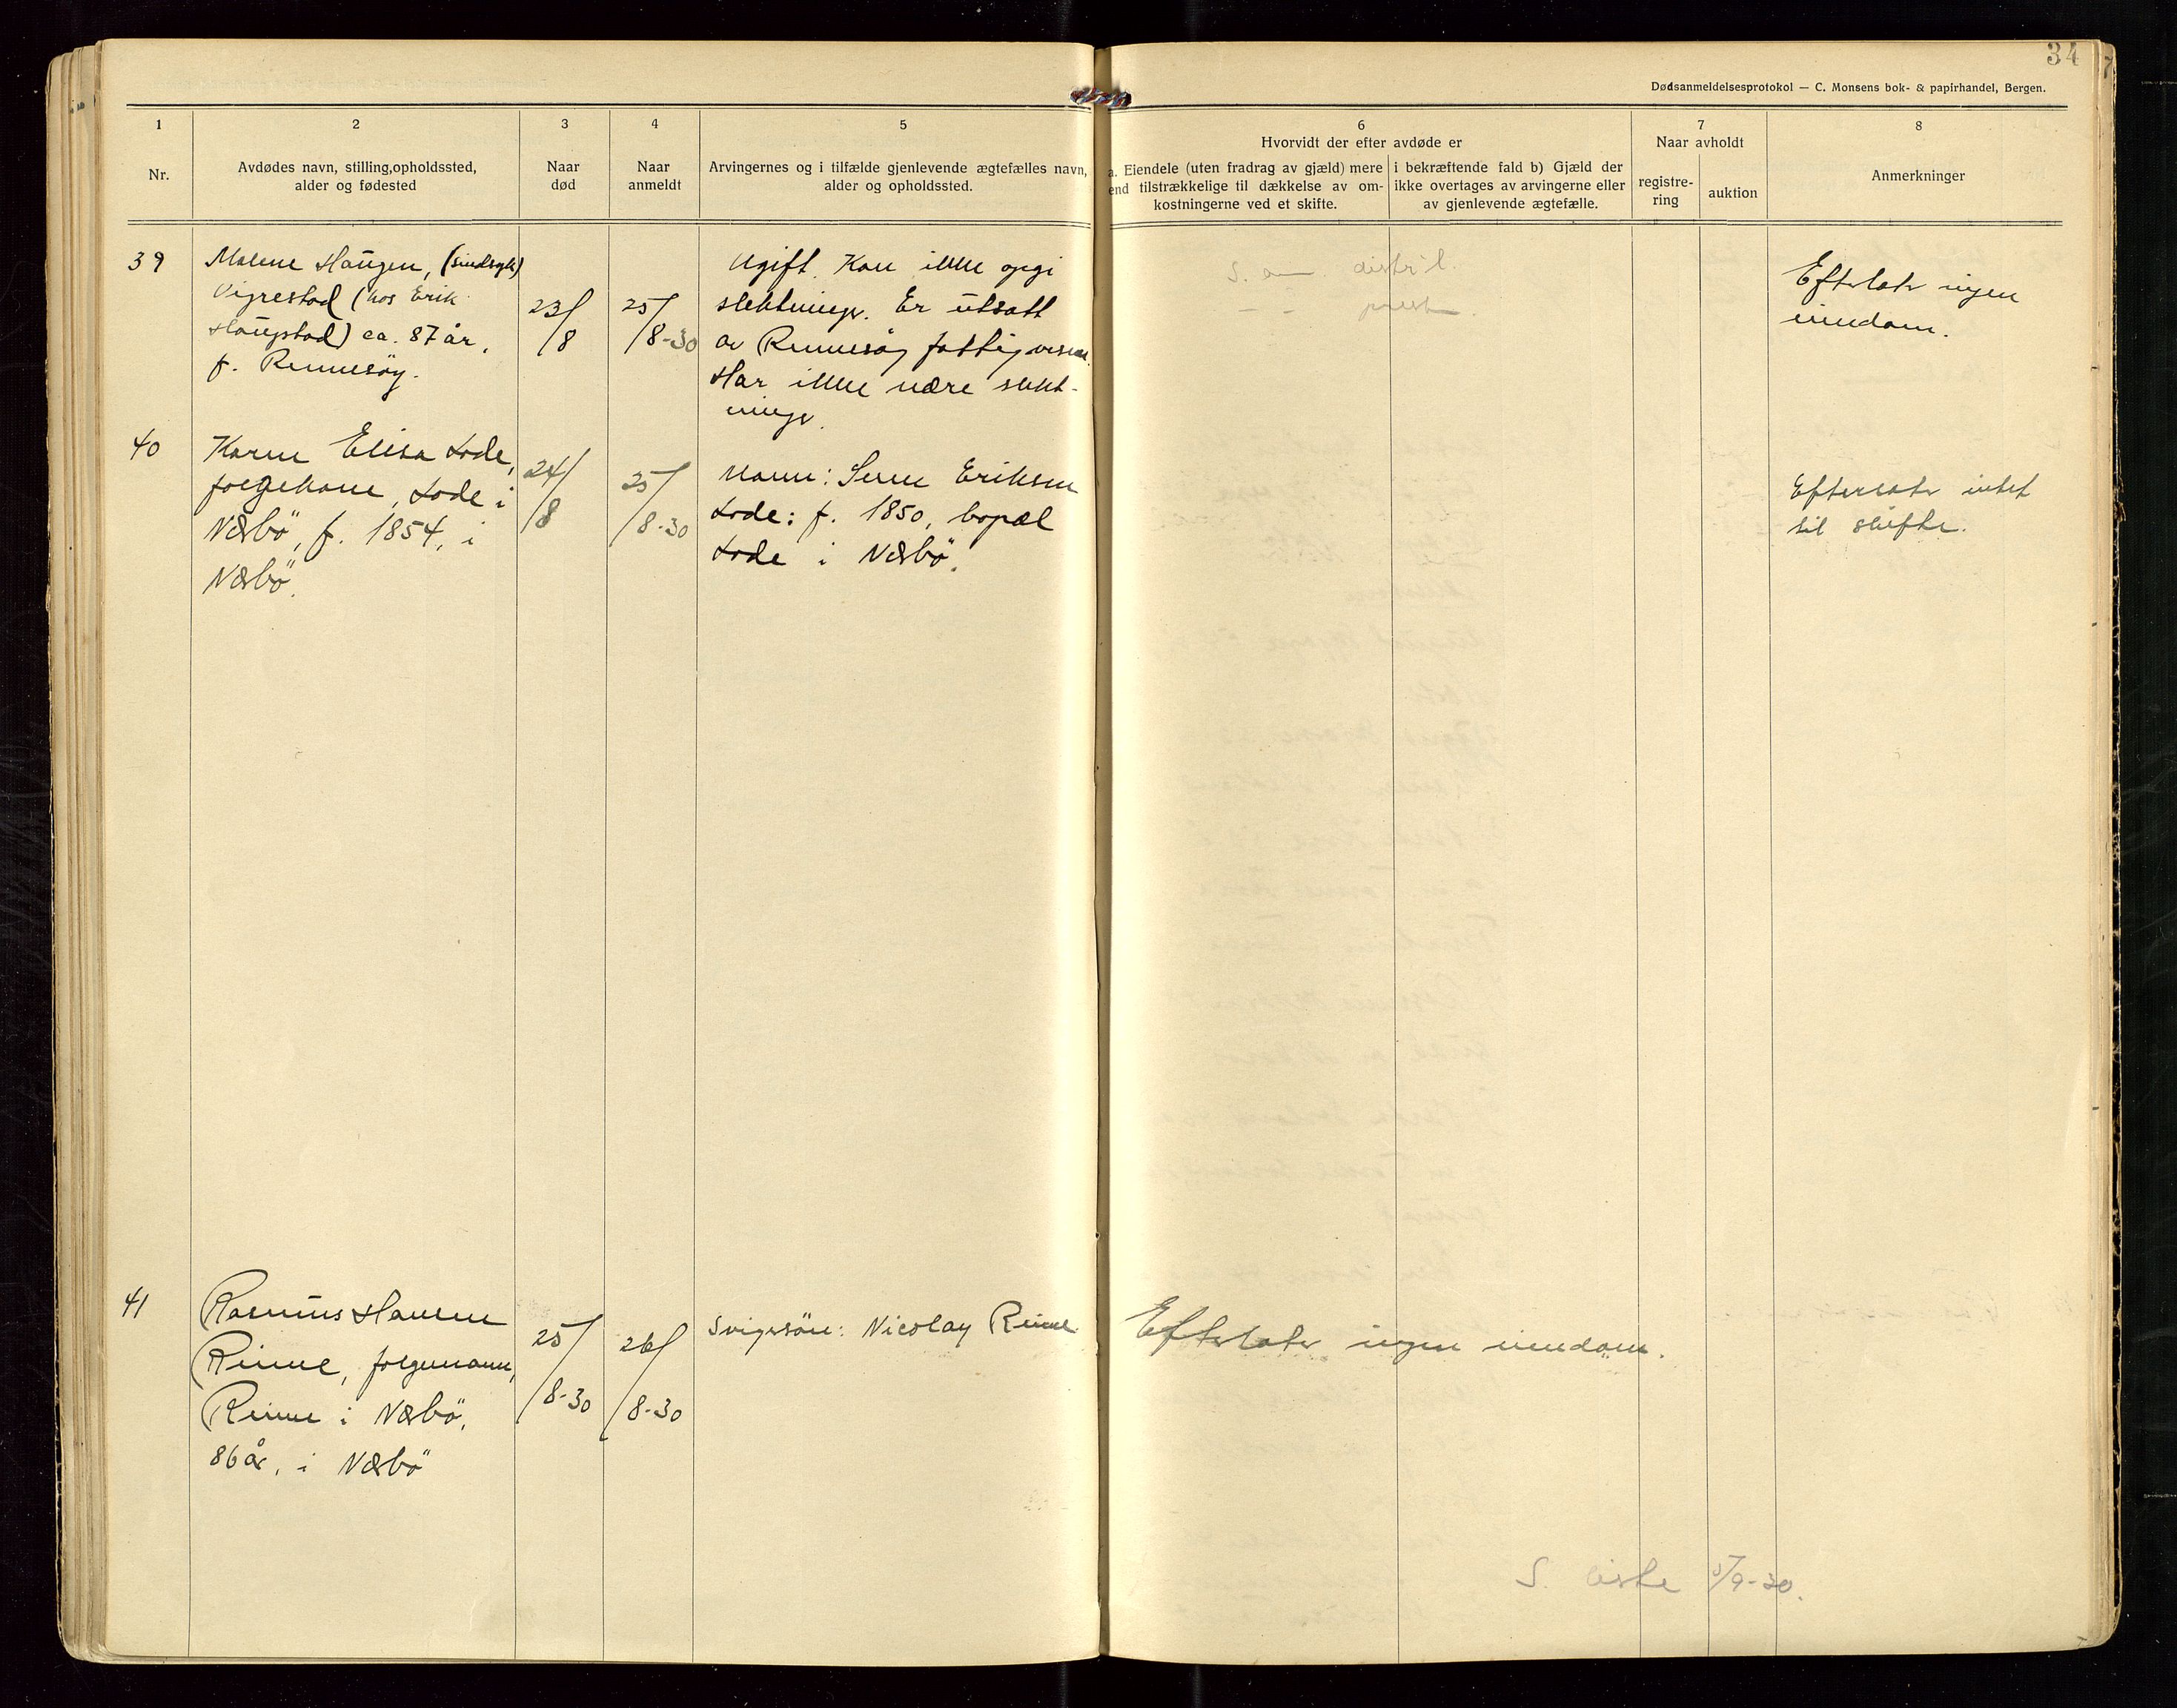 34
Dødsanmeldelsesprotokol — C. Monsens bok- & papirhandel, Bergen.
1
Nr.
2
Avdødes navn, stilling, opholdssted,
alder og fødested
3
Naar
død
4
Naar
anmeldt
5
Arvingernes og i tilfælde gjenlevende ægtefælles navn,
alder og opholdssted.
6
Hvorvidt der efter avdøde er
a. Eiendele (uten fradrag av gjæld) mere
end tilstrækkelige til dækkelse av om-
kostningerne ved et skifte.
i bekræftende fald b) Gjæld der
ikke overtages av arvingerne eller
av gjenlevende ægtefælle.
7
Naar avholdt
registre-
ring
auktion
8
Anmerkninger
39
Malene Haugen, (sindsyk)
Vigrestad (hos Erik
Haugstad) ca. 87 år,
f. Rennesøy.
23/8
25/8-30
Ugift. Kan ikke opgi
slektninger. Er utsatt
av Rennesøy fattigvesen
Har ikke nære slekt-
ninger.
S. a. distr.l.
— - prest
Efterlater ingen
eiendom.
40
Karen Elisa Lode,
følgekone, Lode i
Nærbö, f. 1854, i
Nærbö.
24/8
25/8-30
Mann: Sven Eriksen
Lode: f. 1850, bopæl
Lode i Nærbö.
Efterlater intet
til skifte.
41
Rasmus Hansen
Reime, følgemann,
Reime i Nærbö,
86 år, i Nærbö
25/8-30
26/8-30
Svigersön: Nicolay Reime
Efterlater ingen eiendom.
S. liste 3/9-30.